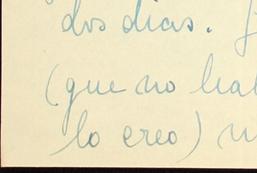 dos dias.
(que no hal
lo creo)